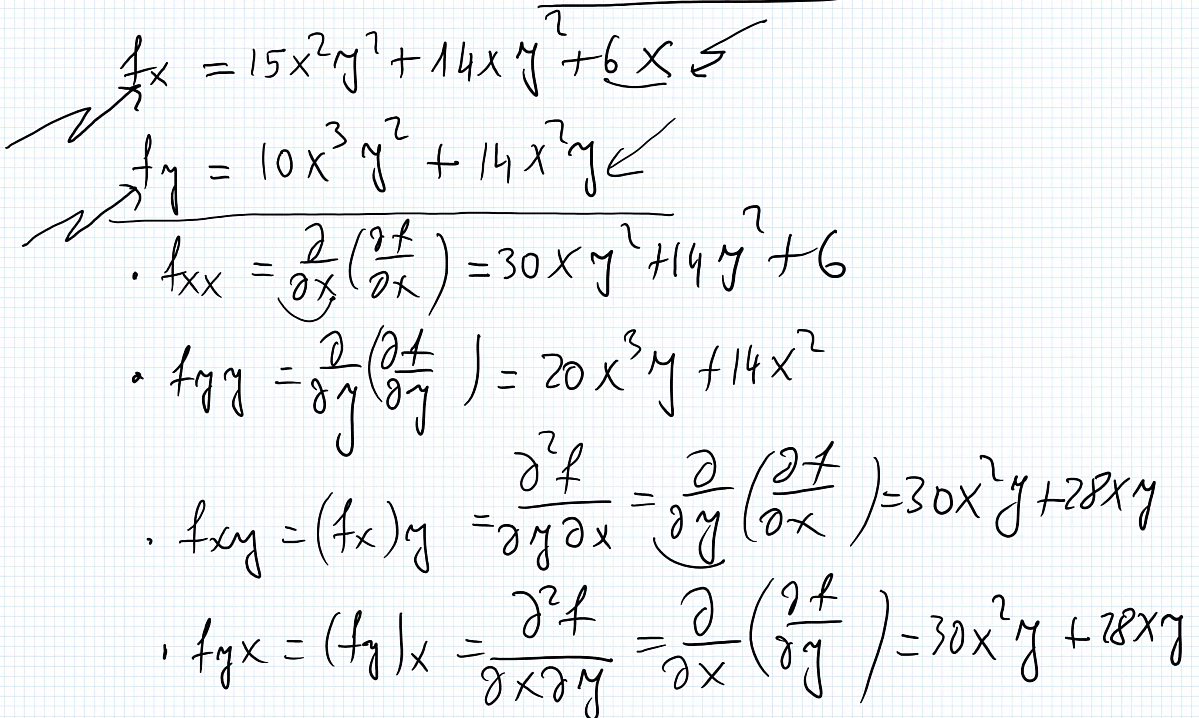 fx = 15x²y² + 14xy² + 6x
fy = 10x³y² + 14x²y
· fxx = ∂/∂x (∂f/∂x) = 30xy² + 14y² + 6
· fyy = ∂/∂y (∂f/∂y) = 20x³y + 14x²
· fxy = (fx)y = ∂²f/∂y∂x = ∂/∂y (∂f/∂x) = 30x²y + 28xy
· fyx = (fy)x = ∂²f/∂x∂y = ∂/∂x (∂f/∂y) = 30x²y + 28xy